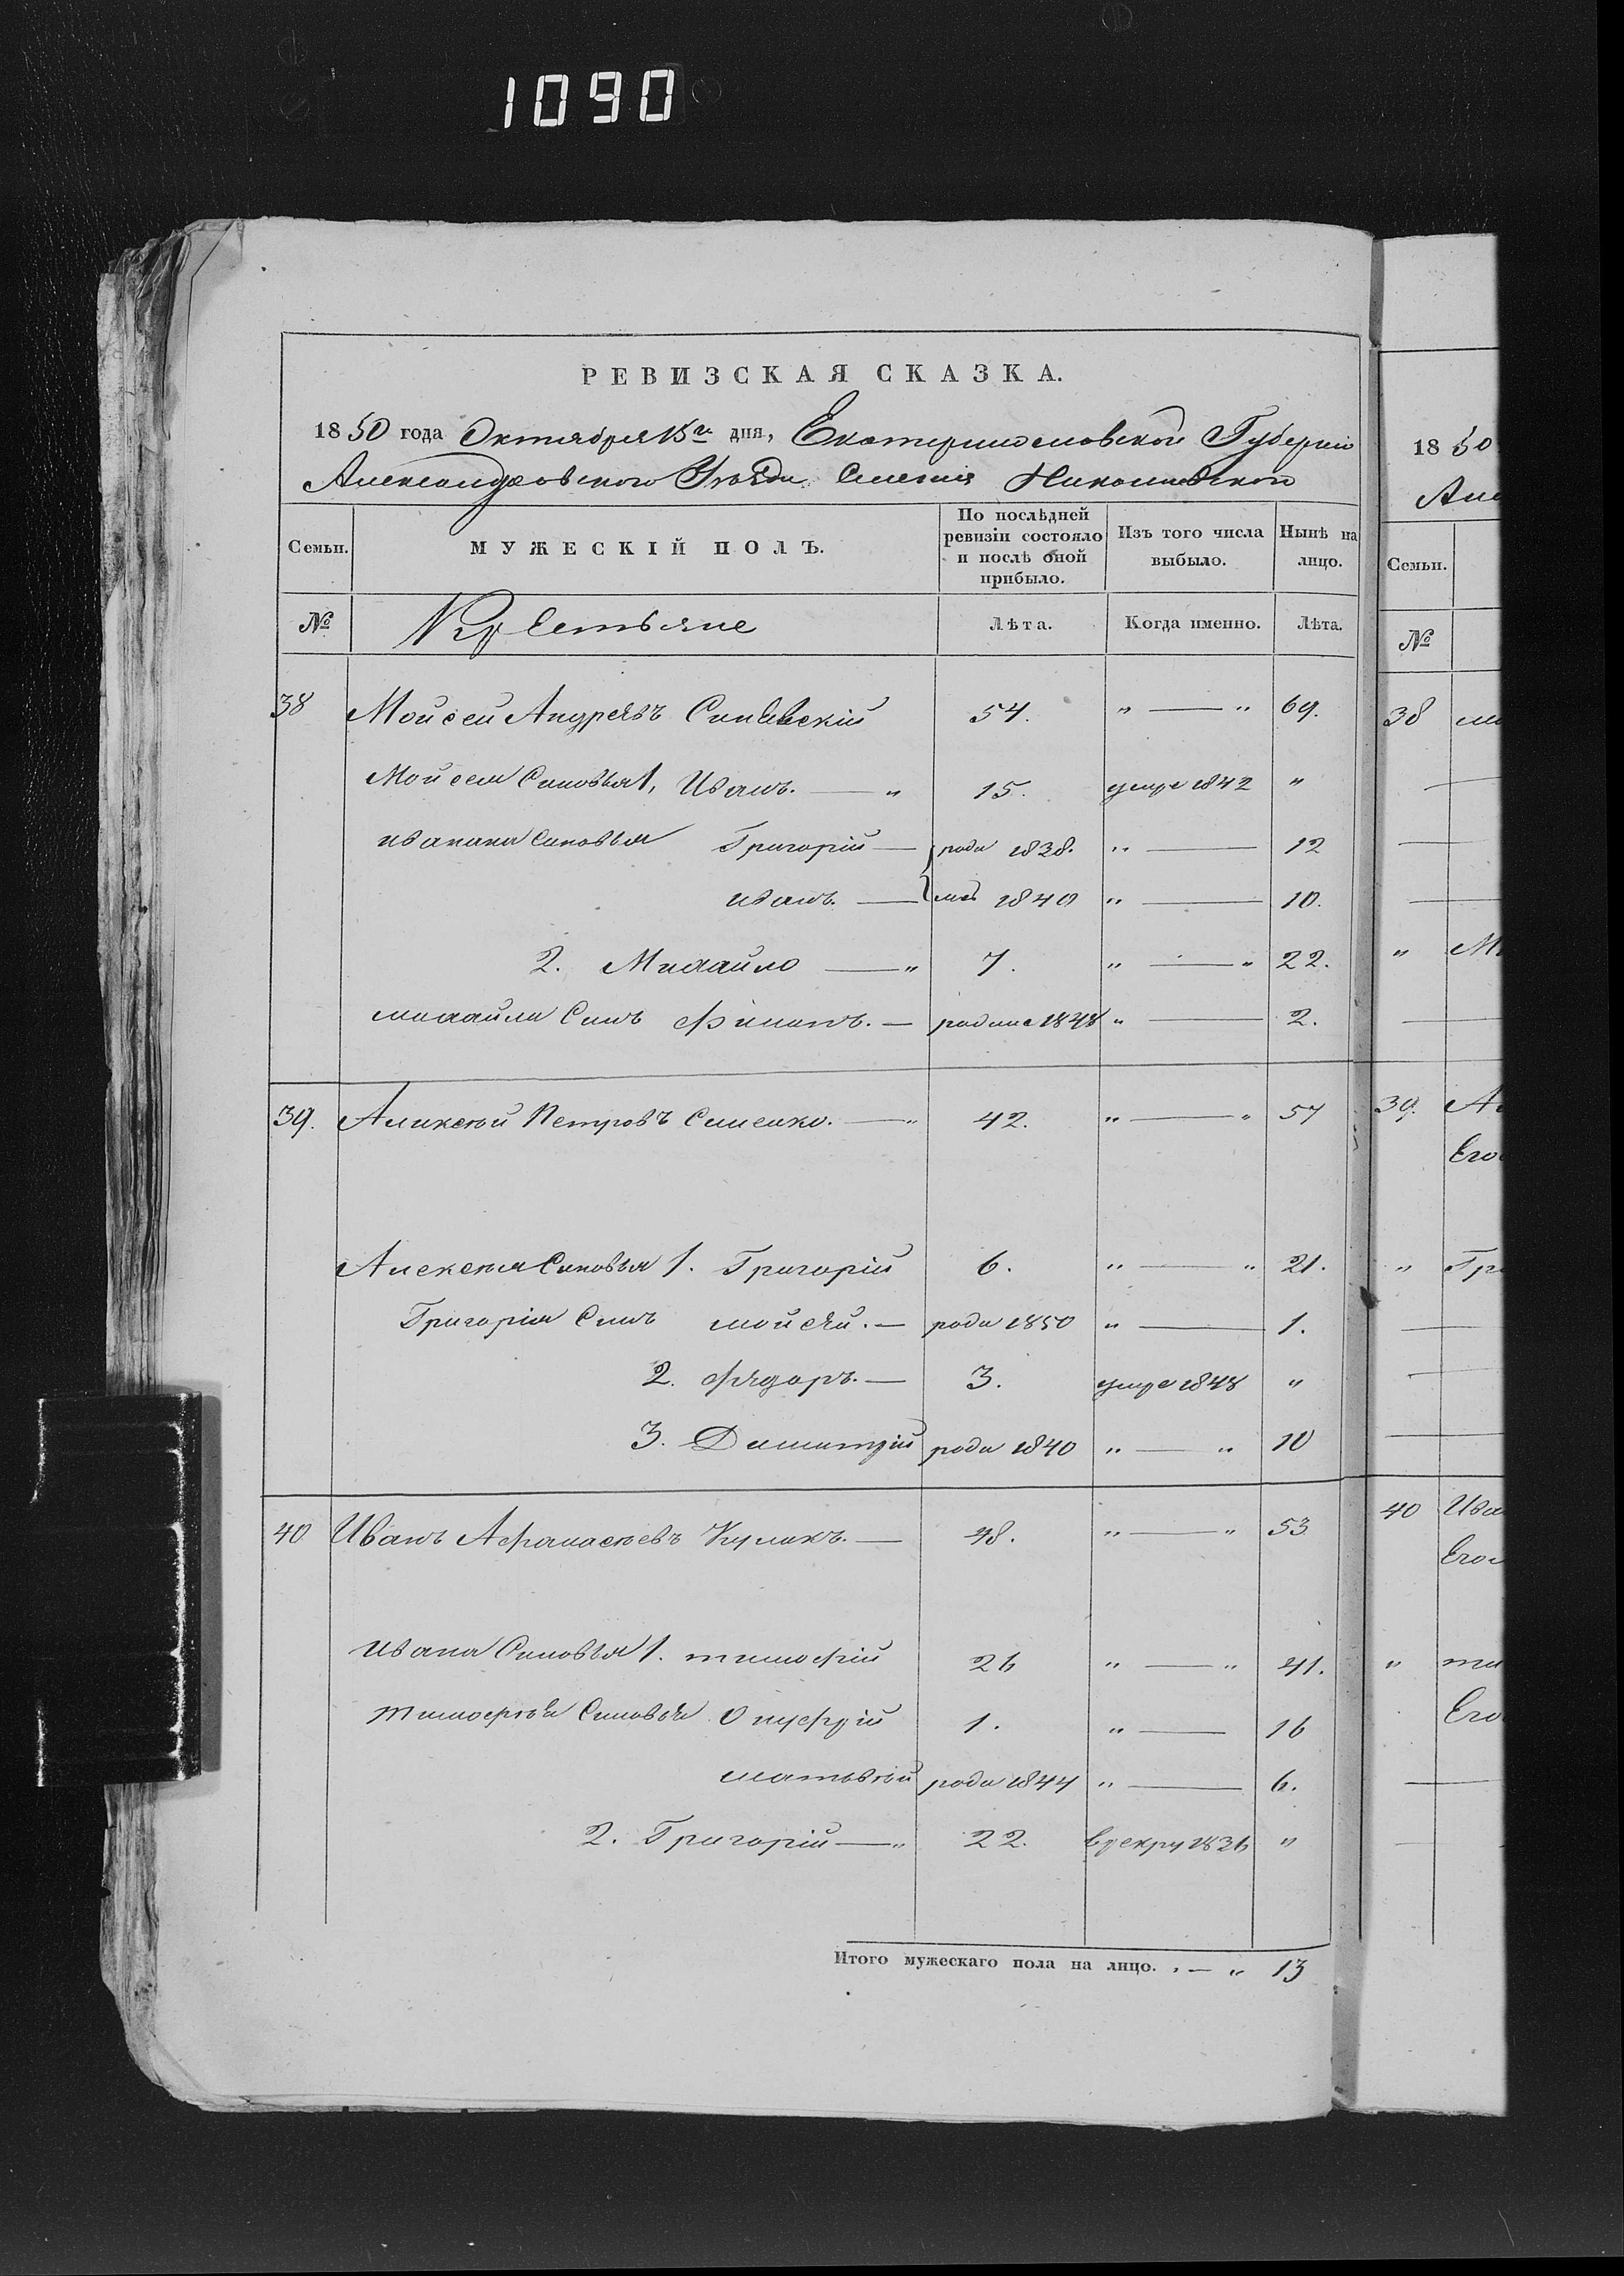 1090
РЕВИЗСКАЯ СКАЗКА.
1850 года Октября 15го дня, Екатеринославской Губерніи
Александровскаго Уезда Имения
Семьи. МУЖЕСКІЙ ПОЛЪ. По послѣдней ревизіи состояло и послѣ оной прибыло. Изъ того числа выбыло. Нынѣ на лицо.
№ Крестьяне Лѣта. Когда именно. Лѣта.
38 Мойсей Андреевъ 54. " — " 69.
Мойсея Синовья 1, Иванъ. — " 15. умре 1842 "
Ивана Синовья Григорій — роди 1838. " — 12
иванъ. — 1840 " — 10.
2. Михайло — " 7. " — " 22.
михайли Синъ Филипъ. — 1848 " — 2.
39. Аликсѣй Петровъ Сименко. — " 42. " — " 57
Алексѣя Синовья 1. Григорій 6. " — " 21.
Григорія Синъ мойсей. — роди 1850 " — 1.
2. Фядоръ. — 3. умре 1848 "
3. Димитрій роди 1840 " — " 10
40 Иванъ Афанасѣевъ Куликъ. — 48. " — " 53
Ивана Синовья 1. тимофій 26 " — " 41.
тимофѣя Синовья Онуфрій 1. " — 16
матвѣй роди 1844 " — 6.
2. Григорій — " 22. в рекру 1836 "
Итого мужескаго пола на лицо. . — " 13
1850
Семьи.
№
38
"
39.
Его
" Гри
40 Ива
Его
" ти
Его